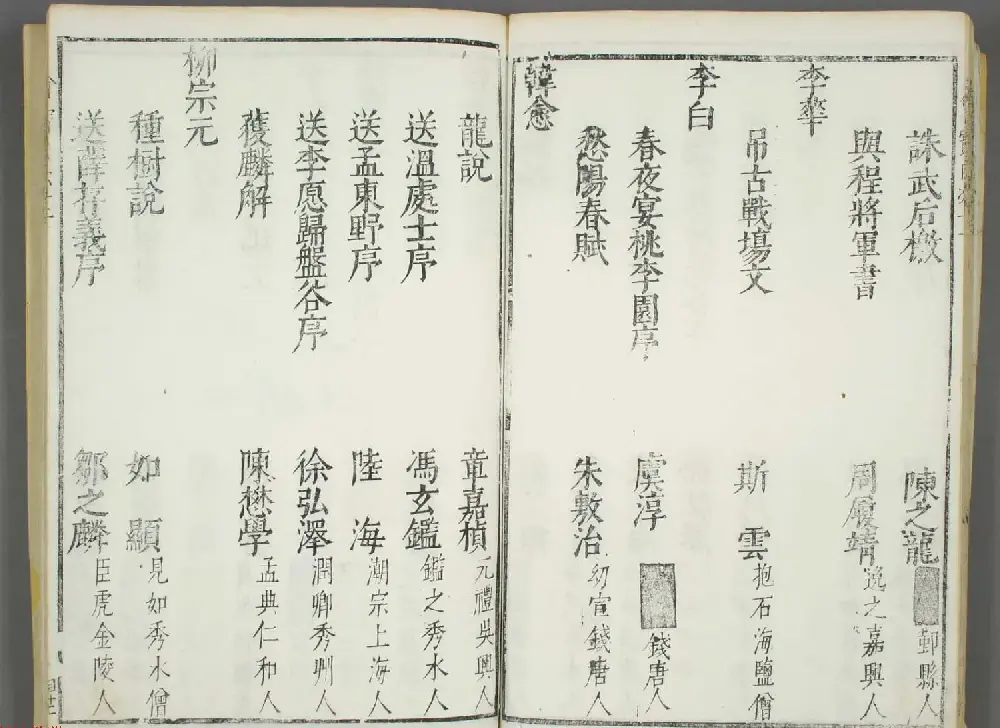 誅武后檄 陳之龍 鄞縣人
與程將軍書 周履靖 逸之嘉興人
李華
弔古戰場文 斯雲 抱石海鹽僧
李白
春夜宴桃李園序 虞淳 錢唐人
愁陽春賦 朱敷治 幼宣錢唐人
韓愈
龍說 章嘉楨 元禮吳興人
送溫處士序 馮玄鑑 鑑之秀水人
送孟東野序 陸海 潮宗上海人
送李愿歸盤谷序 徐弘澤 潤卿秀州人
獲麟解 陳懋學 孟典仁和人
柳宗元
種樹說 如顯 見如秀水僧
送薛存義序 鄒之麟 臣虎金陵人